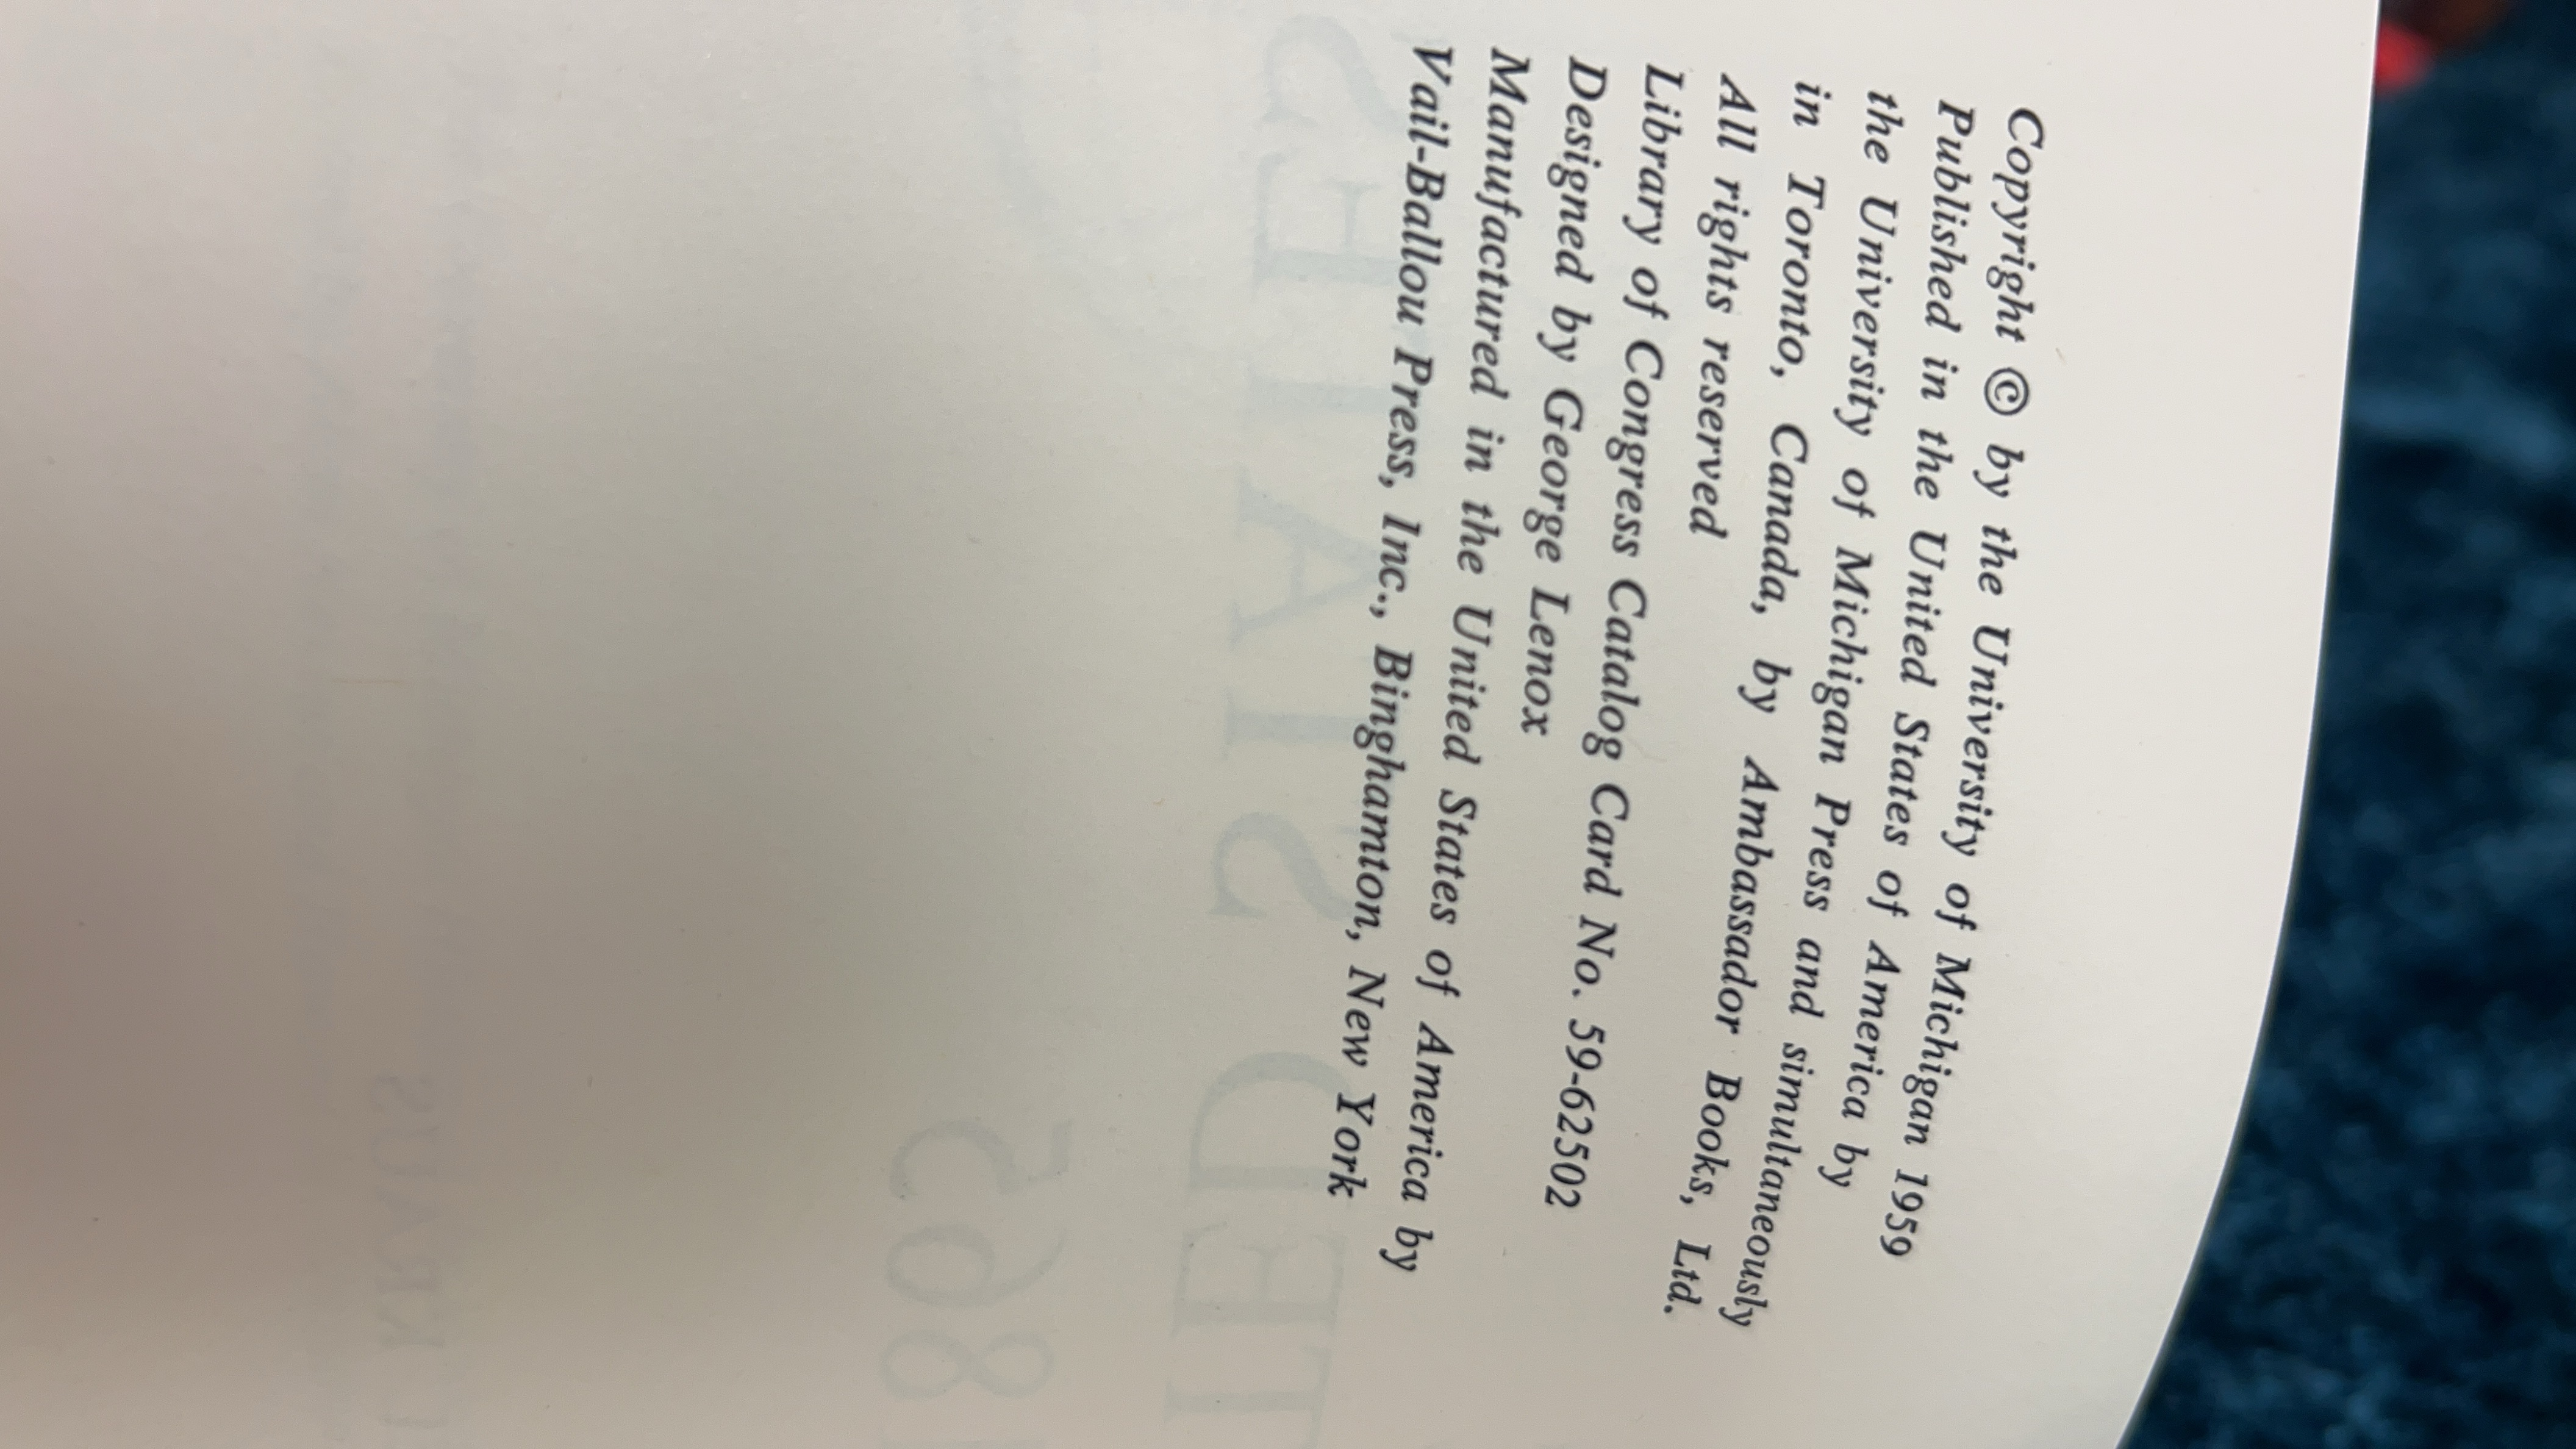 Copyright © by the University of Michigan 1959
Published in the United States of America by
the University of Michigan Press and simultaneously
in Toronto, Canada, by Ambassador Books, Ltd.
All rights reserved
Library of Congress Catalog Card No. 59-62502
Designed by George Lenox
Manufactured in the United States of America by
Vail-Ballou Press, Inc., Binghamton, New York